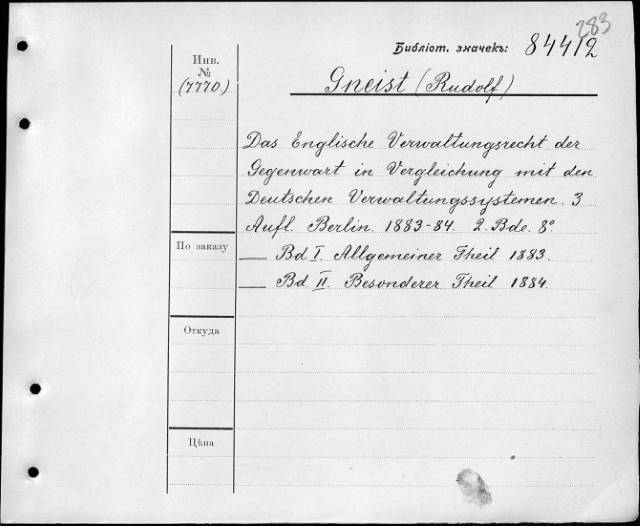 283
Библіот. значекъ: 84412
Инв.
№
(7770)
Gneist (Rudolf)
Das Englische Verwaltungsrecht der
Gegenwart in Vergleichung mit den
Deutschen Verwaltungssystemen. 3
Aufl. Berlin. 1883-84. 2. Bde. 8º.
По заказу
— Bd I. Allgemeiner Theil 1883.
— Bd. II. Besonderer Theil 1884.
Откуда
Цѣна